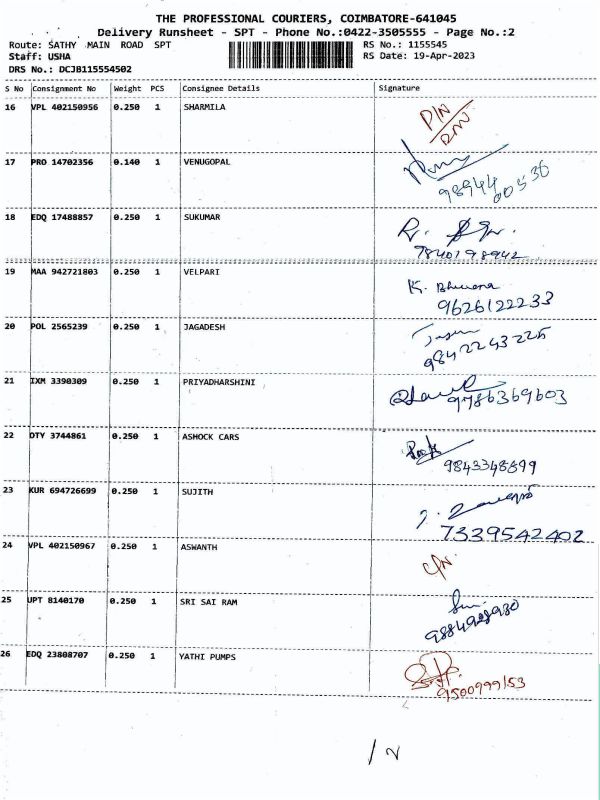 THE PROFESSIONAL COURIERS, COIMBATORE-641045
Delivery Runsheet - SPT - Phone No.:0422-3505555 - Page No.:2
Route: SATHY MAIN ROAD SPT
RS No.: 1155545
Staff: USHA
RS Date: 19-Apr-2023
DRS No.: DCJB115554502
S No Consignment No Weight PCS Consignee Details Signature
16 VPL 402150956 0.250 1 SHARMILA
17 PRO 14702356 0.140 1 VENUGOPAL
98944 00530
18 EDQ 17488857 0.250 1 SUKUMAR
7840198942
19 MAA 942721803 0.250 1 VELPARI K. Bhuvana
9626122233
20 POL 2565239 0.250 1 JAGADESH
9842243225
21 IXM 3390309 0.250 1 PRIYADHARSHINI
9786369603
22 DTY 3744861 0.250 1 ASHOCK CARS
9843348899
23 KUR 694726699 0.250 1 SUJITH
7339542402
24 VPL 402150967 0.250 1 ASWANTH C/N
25 UPT 8140170 0.250 1 SRI SAI RAM
26 EDQ 23808707 0.250 1 YATHI PUMPS
9500999153